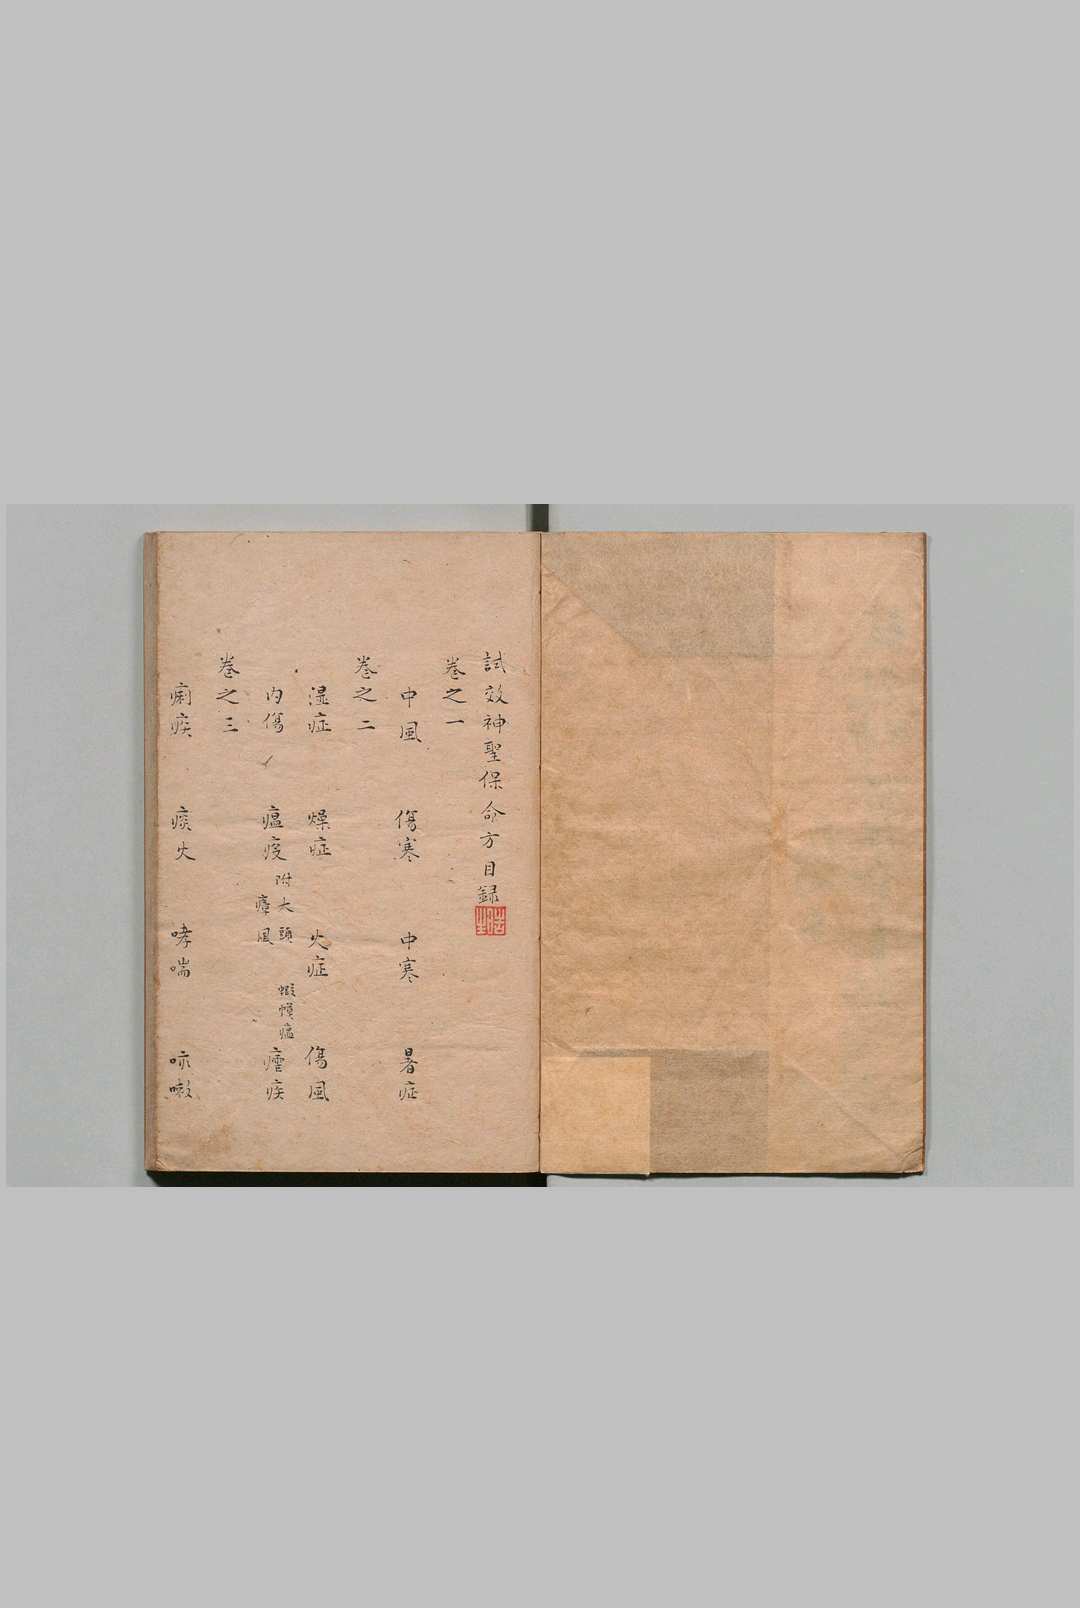 試效神聖保命方目録
巻之一
中風 傷寒 中寒 暑症
巻之二
湿症 燥症 火症 傷風
内傷 瘟疫 附大頭 蝦蟆瘟 癘風 瘧疾
巻之三
痢疾 痰火 哮喘 咳嗽